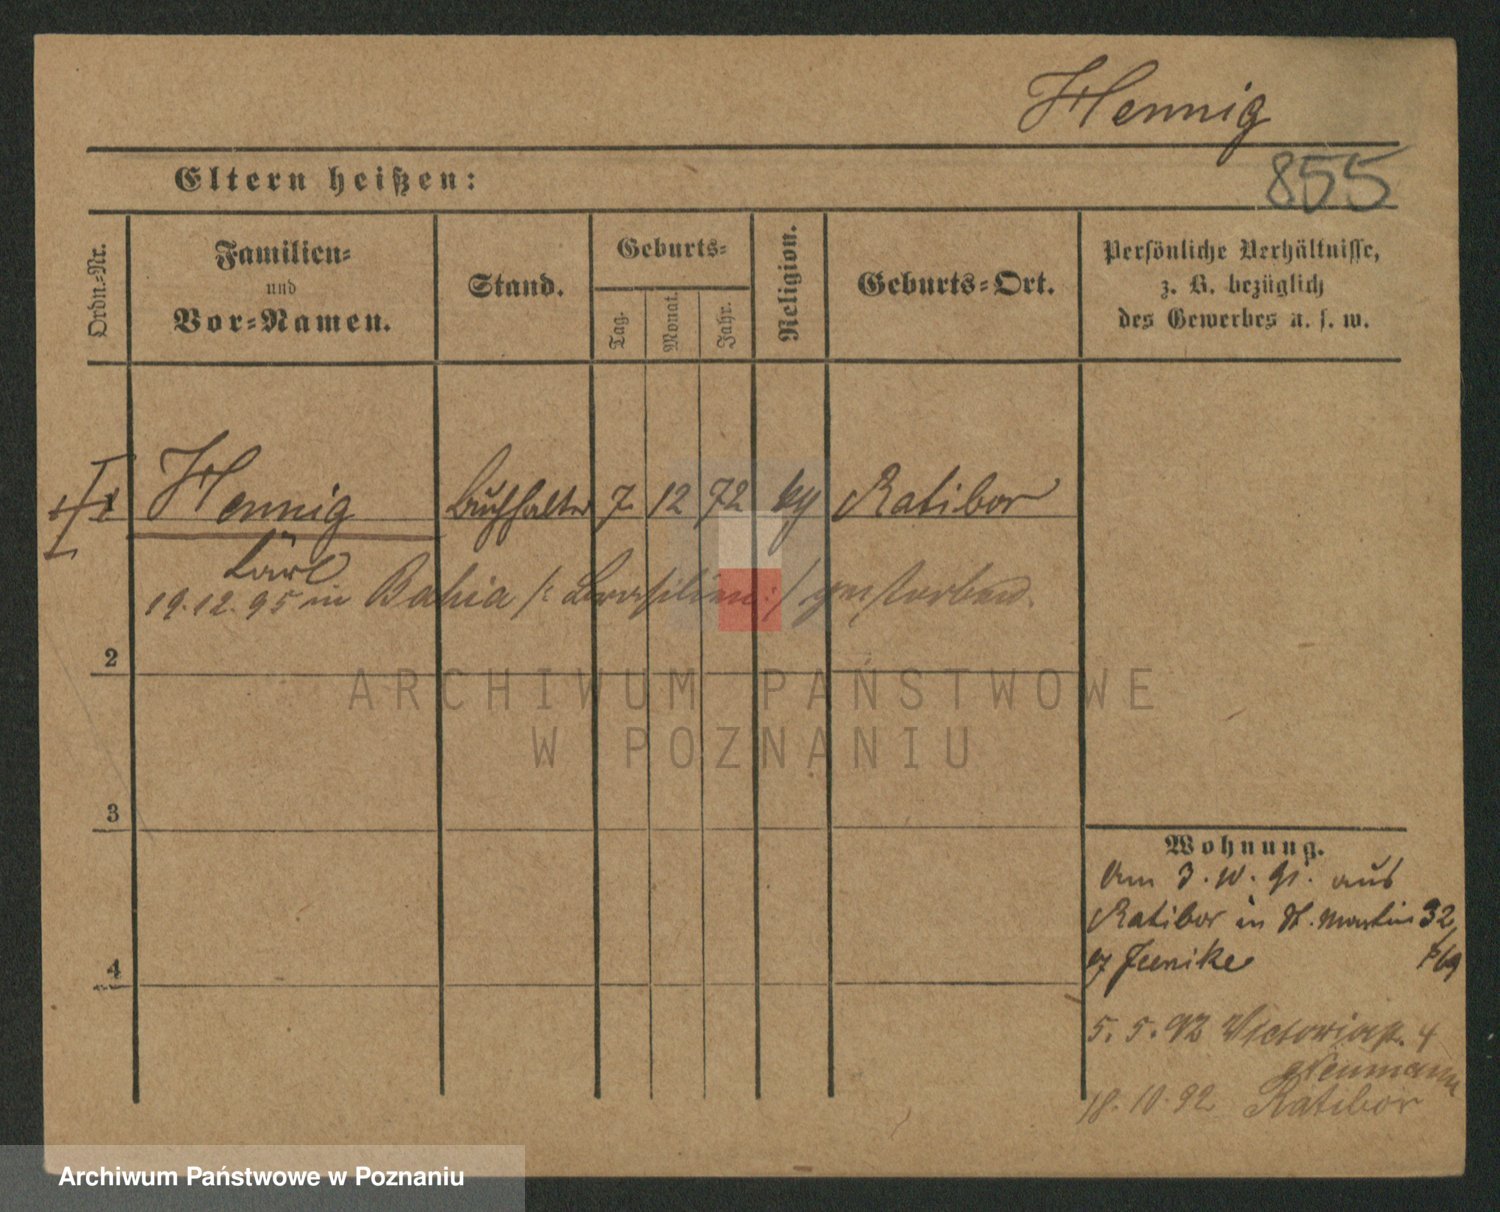 Hennig
855
Eltern heißen:
Ordn.-Nr.
Familien-
und
Vor-Namen.
Stand.
Geburts-
Tag.
Monat.
Jahr.
Religion.
Geburts-Ort.
Persönliche Verhältnisse,
z. B. bezüglich
des Gewerbes u. s. w.
Hennig Buchhalter 7 12 72 Ratibor
Carl
19.12.95 in Bahia /: Brasilien :/ gestorben.
2
ARCHIWUM PAŃSTWOWE
W POZNANIU
3
Wohnung.
Am 3. 10. 91. aus
Ratibor in St. Martin 32,
4
5. 5. 92 Victoriastr. 4
Neumann
18.10.92 Ratibor
Archiwum Państwowe w Poznaniu